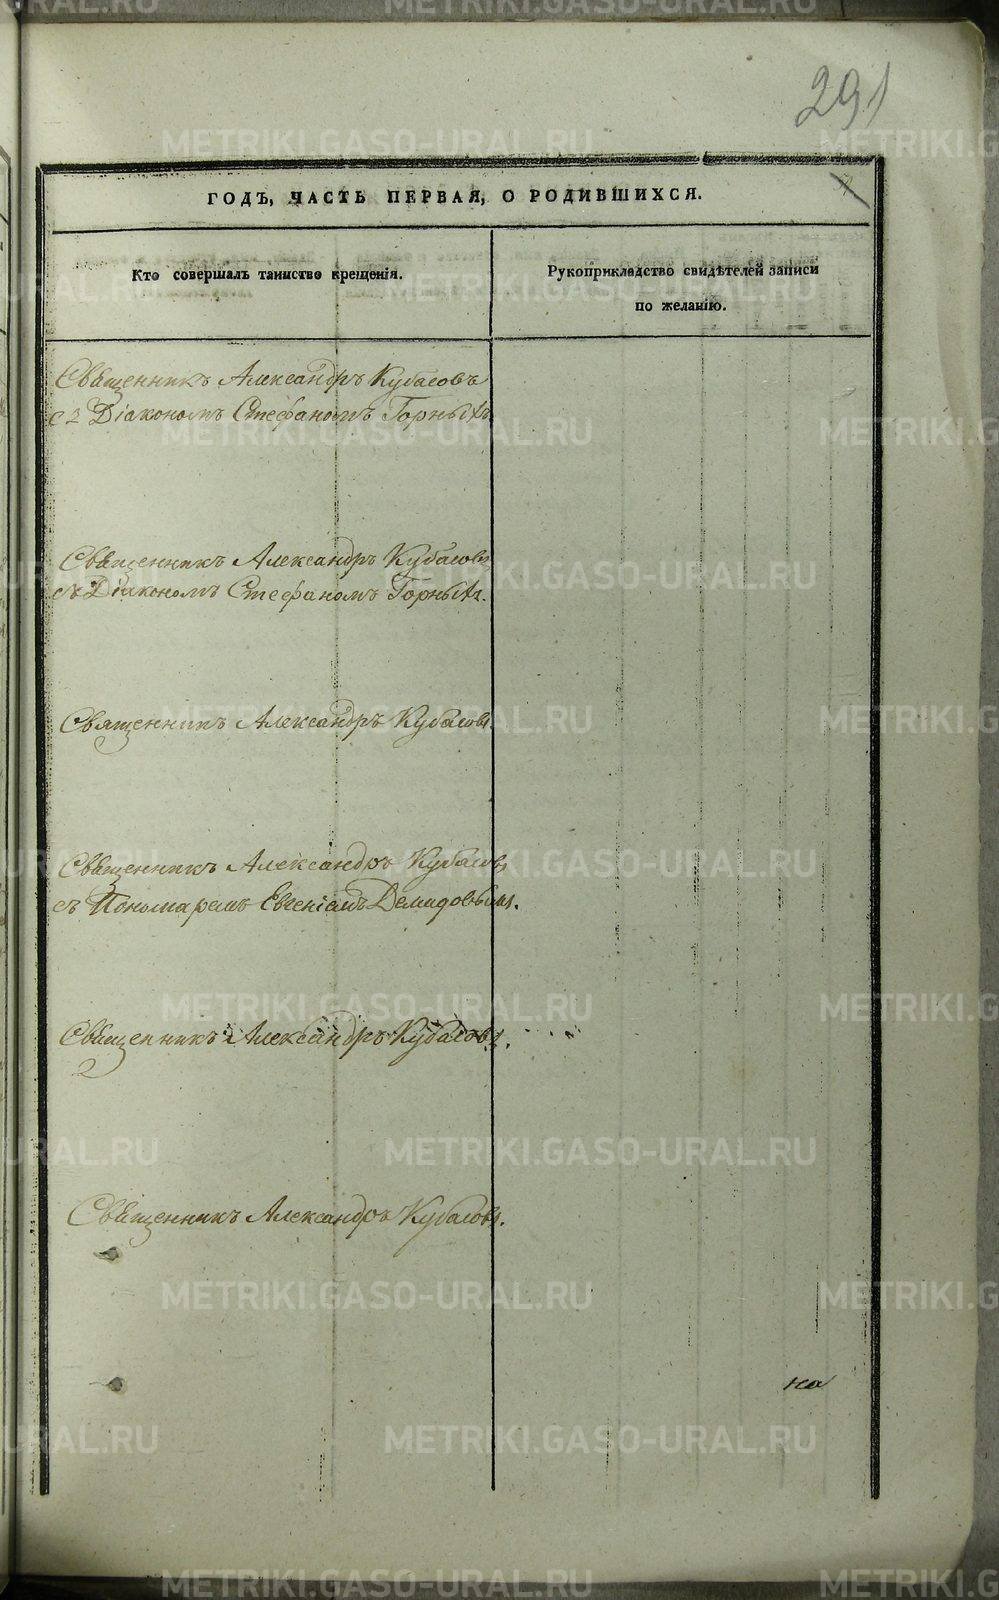 291
ГОДЪ, ЧАСТЬ ПЕРВАЯ, О РОДИВШИХСЯ.
Кто совершалъ таинство крещенія.
Рукоприкладство свидѣтелей записи
по желанію.
Священникъ Александръ Кубасовъ
съ Діакономъ Стефаномъ Горныхъ
Священникъ Александръ Кубасовъ
съ Діакономъ Стефаномъ Горныхъ.
Священникъ Александръ Кубасовъ
Священникъ Александръ Кубасовъ
съ Пономаремъ Евгеніемъ Демидовымъ.
Священникъ Александръ Кубасовъ.
Священникъ Александръ Кубасовъ.
на
METRIKI.GASO-URAL.RU